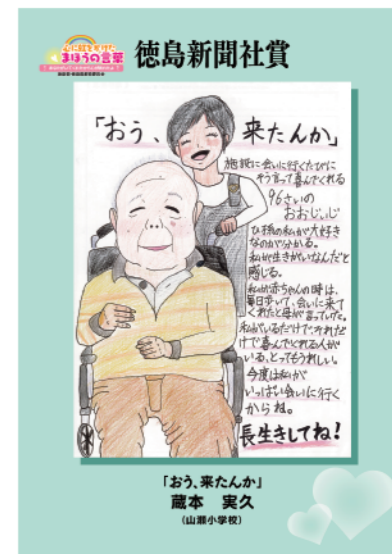 心に虹をかけた
まほうの言葉
徳島新聞社賞
「おう、来たんか」
施設に会いに行くたびに
そう言って喜んでくれる
96さいの
おおじいじ
ひ孫の私が大好き
なのが分かる。
私が生きがいなんだと
感じる。
私が赤ちゃんの時は、
毎日歩いて、会いに来て
くれたと母が言っていた。
私がいるだけで、それだ
けで喜んでくれる人が
いる、とってもうれしい。
今度は私が
いっぱい会いに行く
からね。
長生きしてね!
「おう、来たんか」
蔵本 実久
(山瀬小学校)